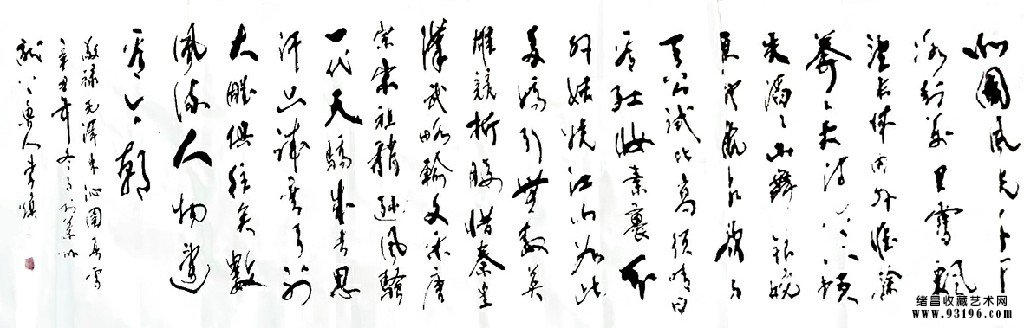 北國风光千里
冰封万里雪飘
望长城内外惟余
莽莽大河上下顿
失滔滔山舞银蛇
原驰蜡象欲与
天公试比高须晴日
看红妆素裹分
外妖娆江山如此
多娇引無数英
雄竞折腰惜秦皇
漢武略输文采唐
宗宋祖稍逊风骚
一代天骄成吉思
汗只识弯弓射
大雕俱往矣數
风流人物還
看今朝
敬录毛泽东沁园春雪
辛丑年冬月於
鲁人李
绪昌收藏艺术网
www.93196.com